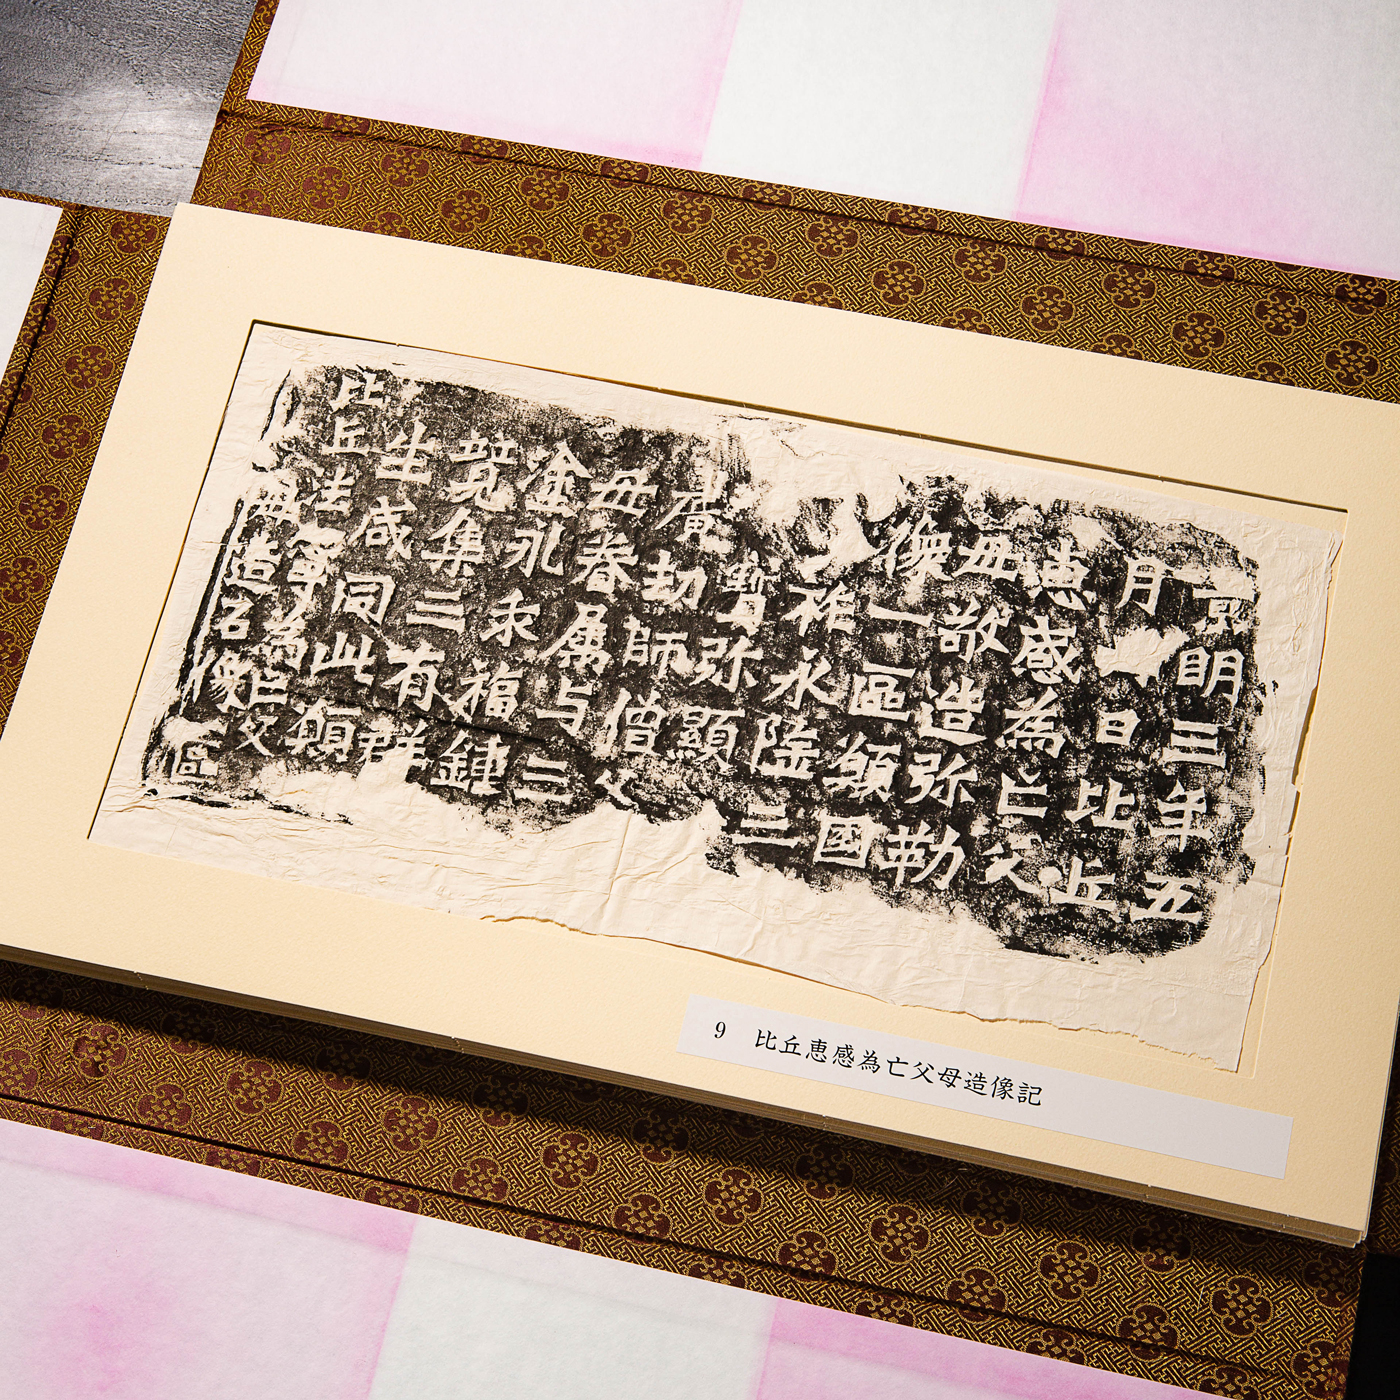 景明三年五
月日比丘
恵感為亡父
母敬造弥勒
像一區願國
祚永隆三
寶弥顯
廣劫師僧父
母眷属与三
塗永乖福鍾
競集三有群
生咸同此願
比丘法寧為亡父
母造石像區
9 比丘恵感為亡父母造像記